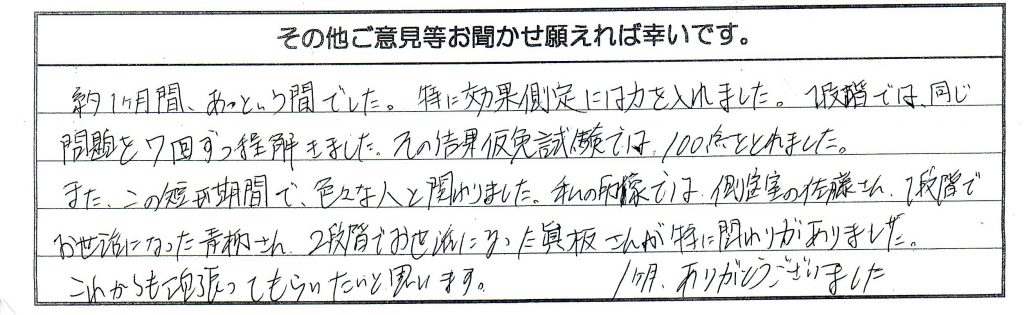 その他ご意見等お聞かせ願えれば幸いです。
約1ヶ月間、あっという間でした。特に効果測定には力を入れました。1段階では、同じ
問題を7回ずつ程解きました。その結果仮免試験では、100点をとれました。
また、この短期間で、色々な人と関わりました。私の中では、測定室の佐藤さん、1段階で
お世話になった青柳さん、2段階でお世話になった眞板さんが特に関わりがありました。
これからも頑張ってもらいたいと思います。 1ヶ月、ありがとうございました